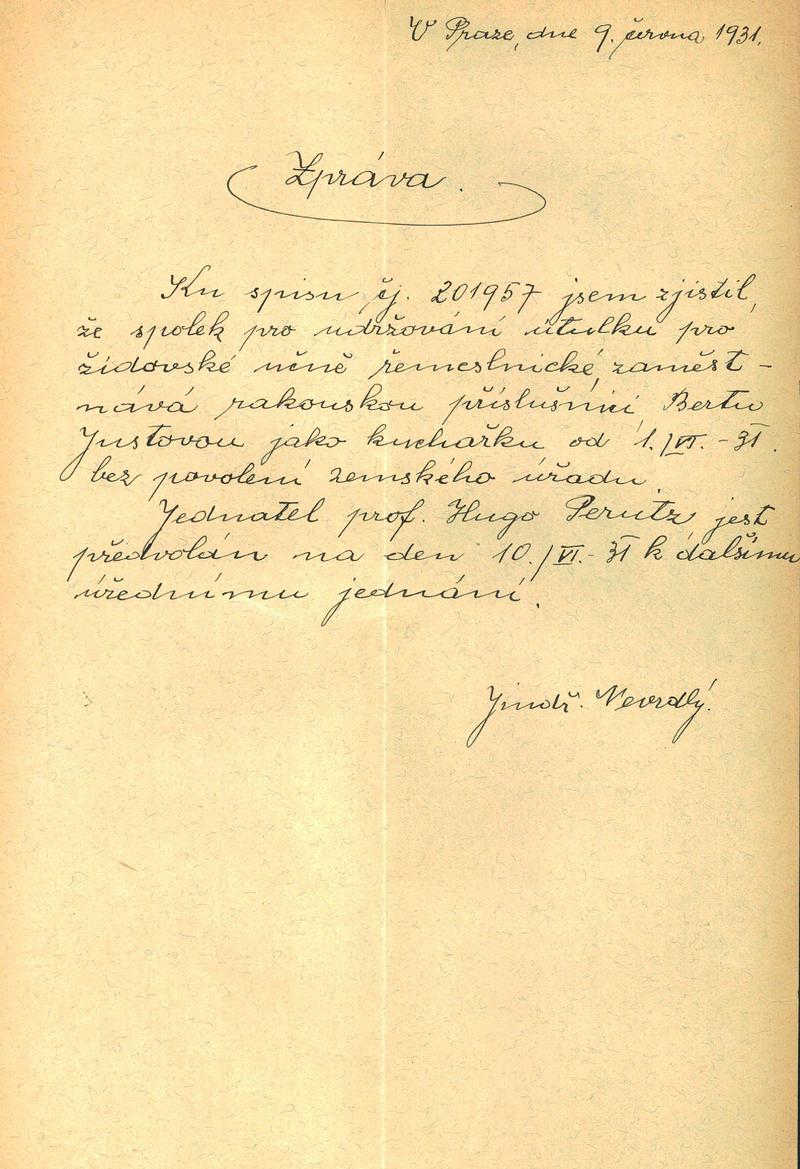 V Praze, dne 9. června 1931.
Zpráva.
Ku spisu čj. 201957 jsem zjistil,
že spolek pro udržování útulku pro
židovské učně řemeslnické, zaměst-
nává rakouskou příslušnici Bertu
Justovou jako kuchařku od 1./VI. - 31.
bez povolení zemského úřadu.
Jednatel prof. Hugo Perutz jest
předvolán na den 10./VI. - 31 k dalšímu
úřednímu jednání.
Jindř. Nevrdlý.